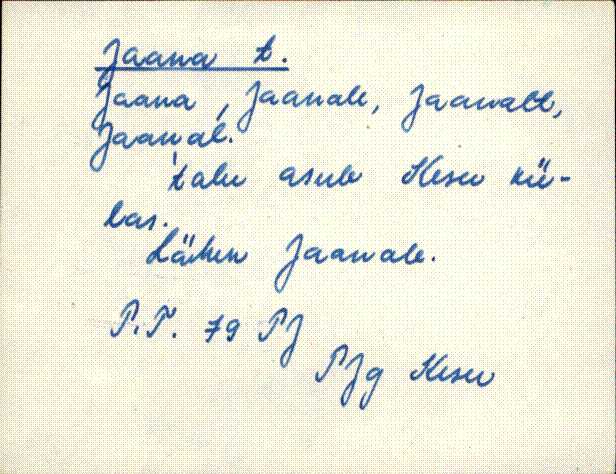 Jaana t.
Jaana, Jaanale, Jaanalt,
Jaanal.
talu asub Kesu kü-
las.
Lähen Jaanale.
P.T. 79 PJ
PJg Kesu